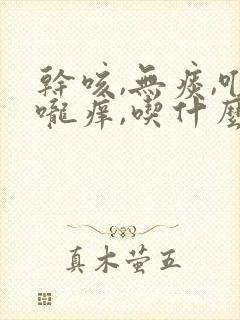 幹咳,無痰,
嚨癢,喫什麼
真木萤五